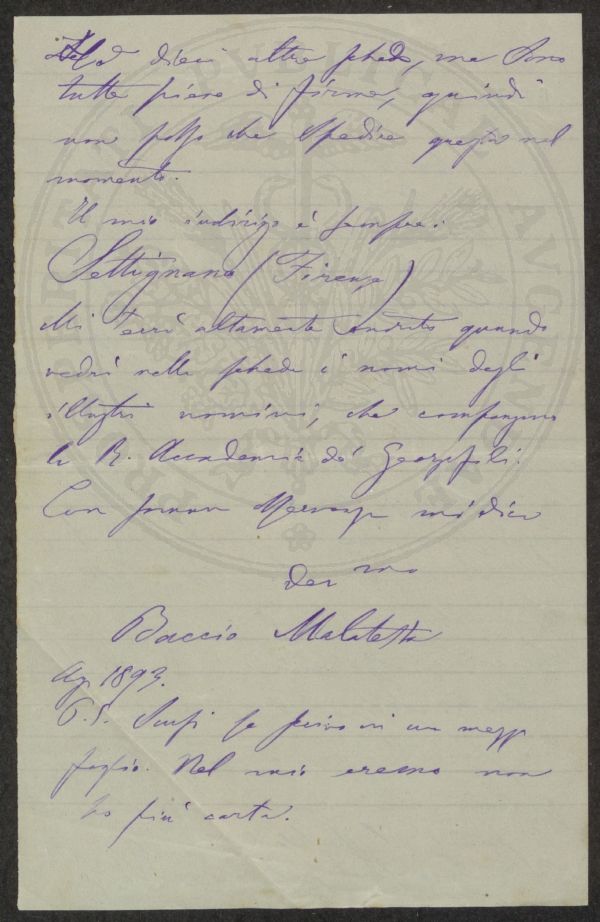 Ho dieci altre schede, ma sono
tutte piene di firme, quindi
non posso che spedire questa nel
momento.
Il mio indirizzo è sempre:
Settignano (Firenze)
Mi terrò altamente onorato quando
vedrò nelle schede i nomi degli
illustri uomini, che compongono
la R. Accademia dei Georgofili.
Con somma stima mi dico
Dev mo
Baccio Malatesta
Ag. 1893.
P.S. Scusi se scrivo in un mezzo
foglio. Nel mio eremo non
ho più carta.